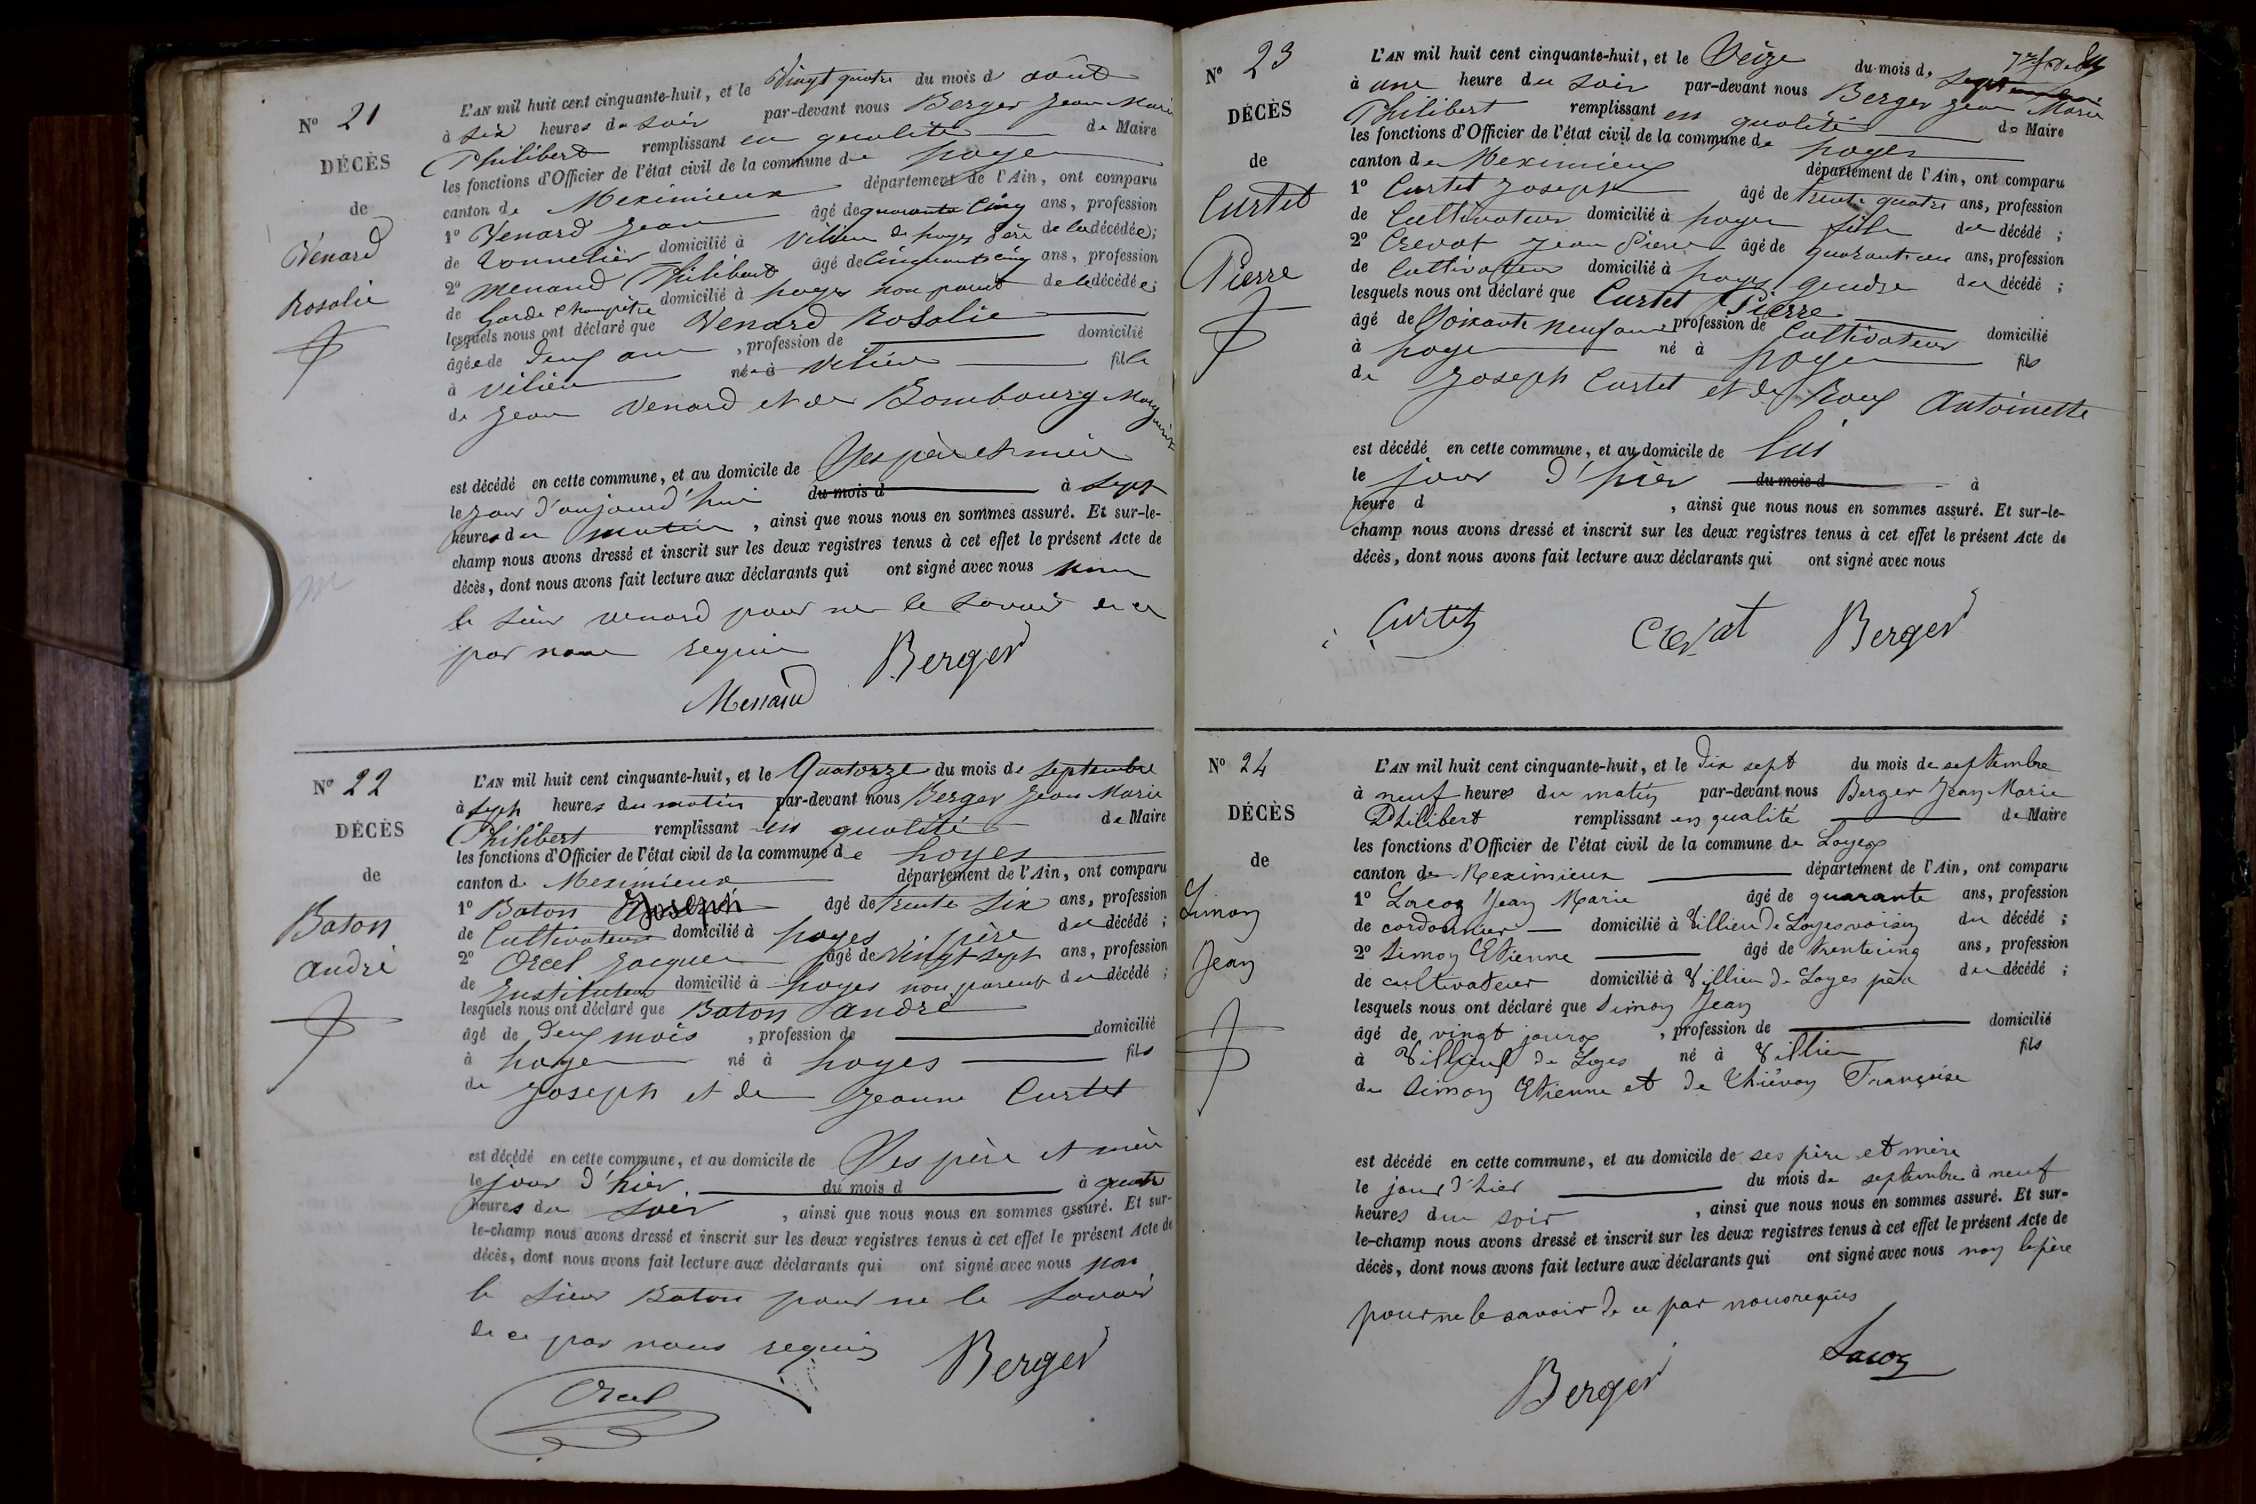 N° 21
DÉCÈS
de
Venard
Rosalie
L'AN mil huit cent cinquante-huit, et le Vingt quatre du mois d août
à six heures du soir par-devant nous Berger Jean Marie
Philibert remplissant en qualité de Maire
les fonctions d'Officier de l'état civil de la commune de Loyes
canton de Meximieux département de l'Ain, ont comparu
1° Venard Jean âgé de quarante cinq ans, profession
de Tonnelier domicilié à Vilieu de Loyes père de la décédée;
2° Menand Philibert âgé de cinquante cinq ans, profession
de Garde champêtre domicilié à Loyes non parent de la décédée;
lesquels nous ont déclaré que Venard Rosalie
âgée de deux ans, profession de domicilié
à Vilieu née à Vilieu fille
de Jean Venard et de Bombourg Marguerite
est décédé en cette commune, et au domicile de Ses père et mère
le jour d'aujourd'hui du mois d à sept
heures du matin, ainsi que nous nous en sommes assuré. Et sur-le-
champ nous avons dressé et inscrit sur les deux registres tenus à cet effet le présent Acte de
décès, dont nous avons fait lecture aux déclarants qui ont signé avec nous non
le sieur Venard pour ne le savoir de ce
par nous requis
Berger
Menand
N° 22
DÉCÈS
de
Baton
André
L'AN mil huit cent cinquante-huit, et le Quatorze du mois de septembre
à sept heures du matin par-devant nous Berger Jean Marie
Philibert remplissant en qualité de Maire
les fonctions d'Officier de l'état civil de la commune de Loyes
canton de Meximieux département de l'Ain, ont comparu
1° Baton Joseph âgé de trente six ans, profession
de Cultivateur domicilié à Loyes, père du décédé;
2° Orcel Jacques âgé de vingt sept ans, profession
de Instituteur domicilié à Loyes non parent du décédé;
lesquels nous ont déclaré que Baton André
âgé de deux mois, profession de domicilié
à Loyes né à Loyes fils
de Joseph et de Jeanne Curtet
est décédé en cette commune, et au domicile de Ses père et mère
le jour d'hier du mois d à quatre
heures du soir, ainsi que nous nous en sommes assuré. Et sur-
le-champ nous avons dressé et inscrit sur les deux registres tenus à cet effet le présent Acte de
décès, dont nous avons fait lecture aux déclarants qui ont signé avec nous non
le sieur Baton pour ne le savoir
de ce par nous requis
Berger
Orcel
N° 23
DÉCÈS
de
Curtet
Pierre
L'AN mil huit cent cinquante-huit, et le Seize du mois d. septembre
à une heure du soir par-devant nous Berger Jean Marie
Philibert remplissant en qualité de Maire
les fonctions d'Officier de l'état civil de la commune de Loyes
canton de Meximieux département de l'Ain, ont comparu
1° Curtet Joseph âgé de trente quatre ans, profession
de Cultivateur domicilié à Loyes fils du décédé;
2° Crevat Jean Pierre âgé de quarante un ans, profession
de Cultivateur domicilié à Loyes gendre du décédé;
lesquels nous ont déclaré que Curtet Pierre
âgé de Soixante neuf ans profession de Cultivateur domicilié
à Loyes né à Loyes fils
de Joseph Curtet et de Roux Antoinette
est décédé en cette commune, et au domicile de lui
le jour d'hier du mois d à
heure d, ainsi que nous nous en sommes assuré. Et sur-le-
champ nous avons dressé et inscrit sur les deux registres tenus à cet effet le présent Acte de
décès, dont nous avons fait lecture aux déclarants qui ont signé avec nous
Curtet Crevat Berger
N° 24
DÉCÈS
de
Simon
Jean
L'AN mil huit cent cinquante-huit, et le dix sept du mois de septembre
à neuf heures du matin par-devant nous Berger Jean Marie
Philibert remplissant en qualité de Maire
les fonctions d'Officier de l'état civil de la commune de Loyes
canton de Meximieux département de l'Ain, ont comparu
1° Lacoz Jean Marie âgé de quarante ans, profession
de cordonnier domicilié à Villieu de Loyes voisin du décédé;
2° Simon Etienne âgé de trente cinq ans, profession
de cultivateur domicilié à Villieu de Loyes père du décédé;
lesquels nous ont déclaré que Simon Jean
âgé de vingt jours, profession de domicilié
à Villieu de Loyes né à Villieu fils
de Simon Etienne et de Thiévon Françoise
est décédé en cette commune, et au domicile de ses père et mère
le jour d'hier du mois de septembre à neuf
heures du soir, ainsi que nous nous en sommes assuré. Et sur-
le-champ nous avons dressé et inscrit sur les deux registres tenus à cet effet le présent Acte de
décès, dont nous avons fait lecture aux déclarants qui ont signé avec nous non le père
pour ne le savoir de ce par nous requis
Lacoz
Berger